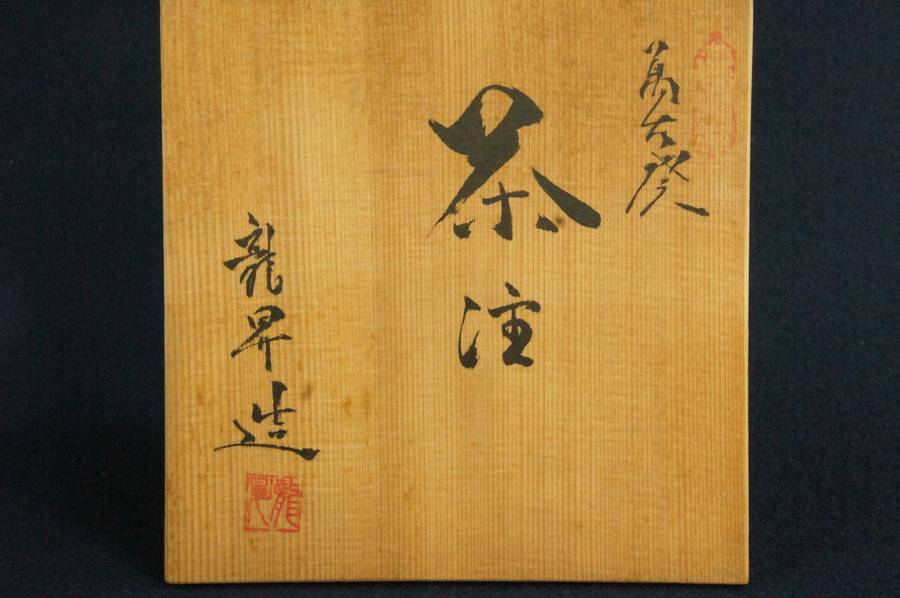 萬古焼
茶注
龍昇造